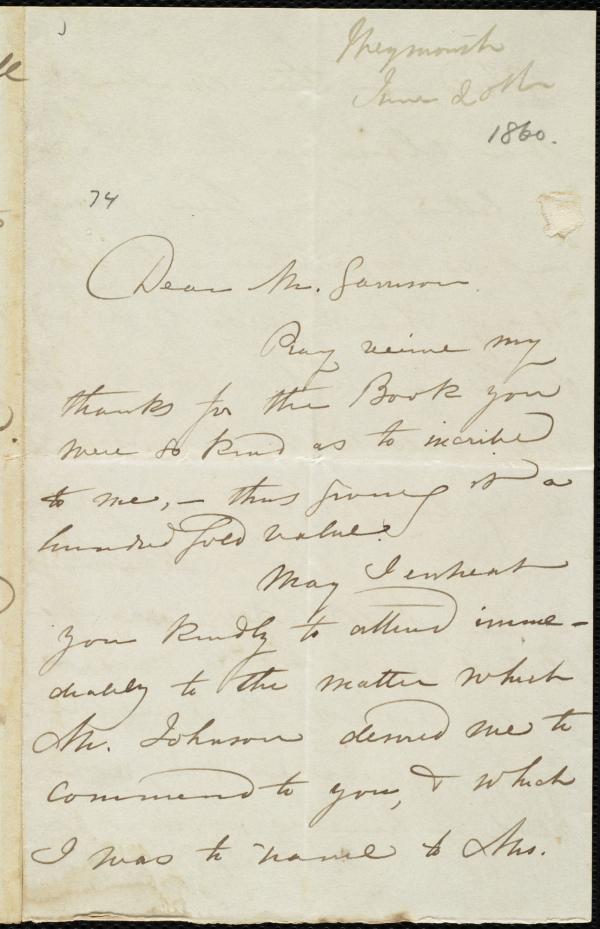 Weymouth
June 20th
1860.
74
Dear Mr. Garrison.
Pray receive my
thanks for the Book you
were so kind as to inscribe
to me, – thus giving it a
hundred fold value.
May I entreat
you kindly to attend imme-
diately to the matter which
Mr. Johnson desired me to
commend to you, & which
I was to name to Mrs.